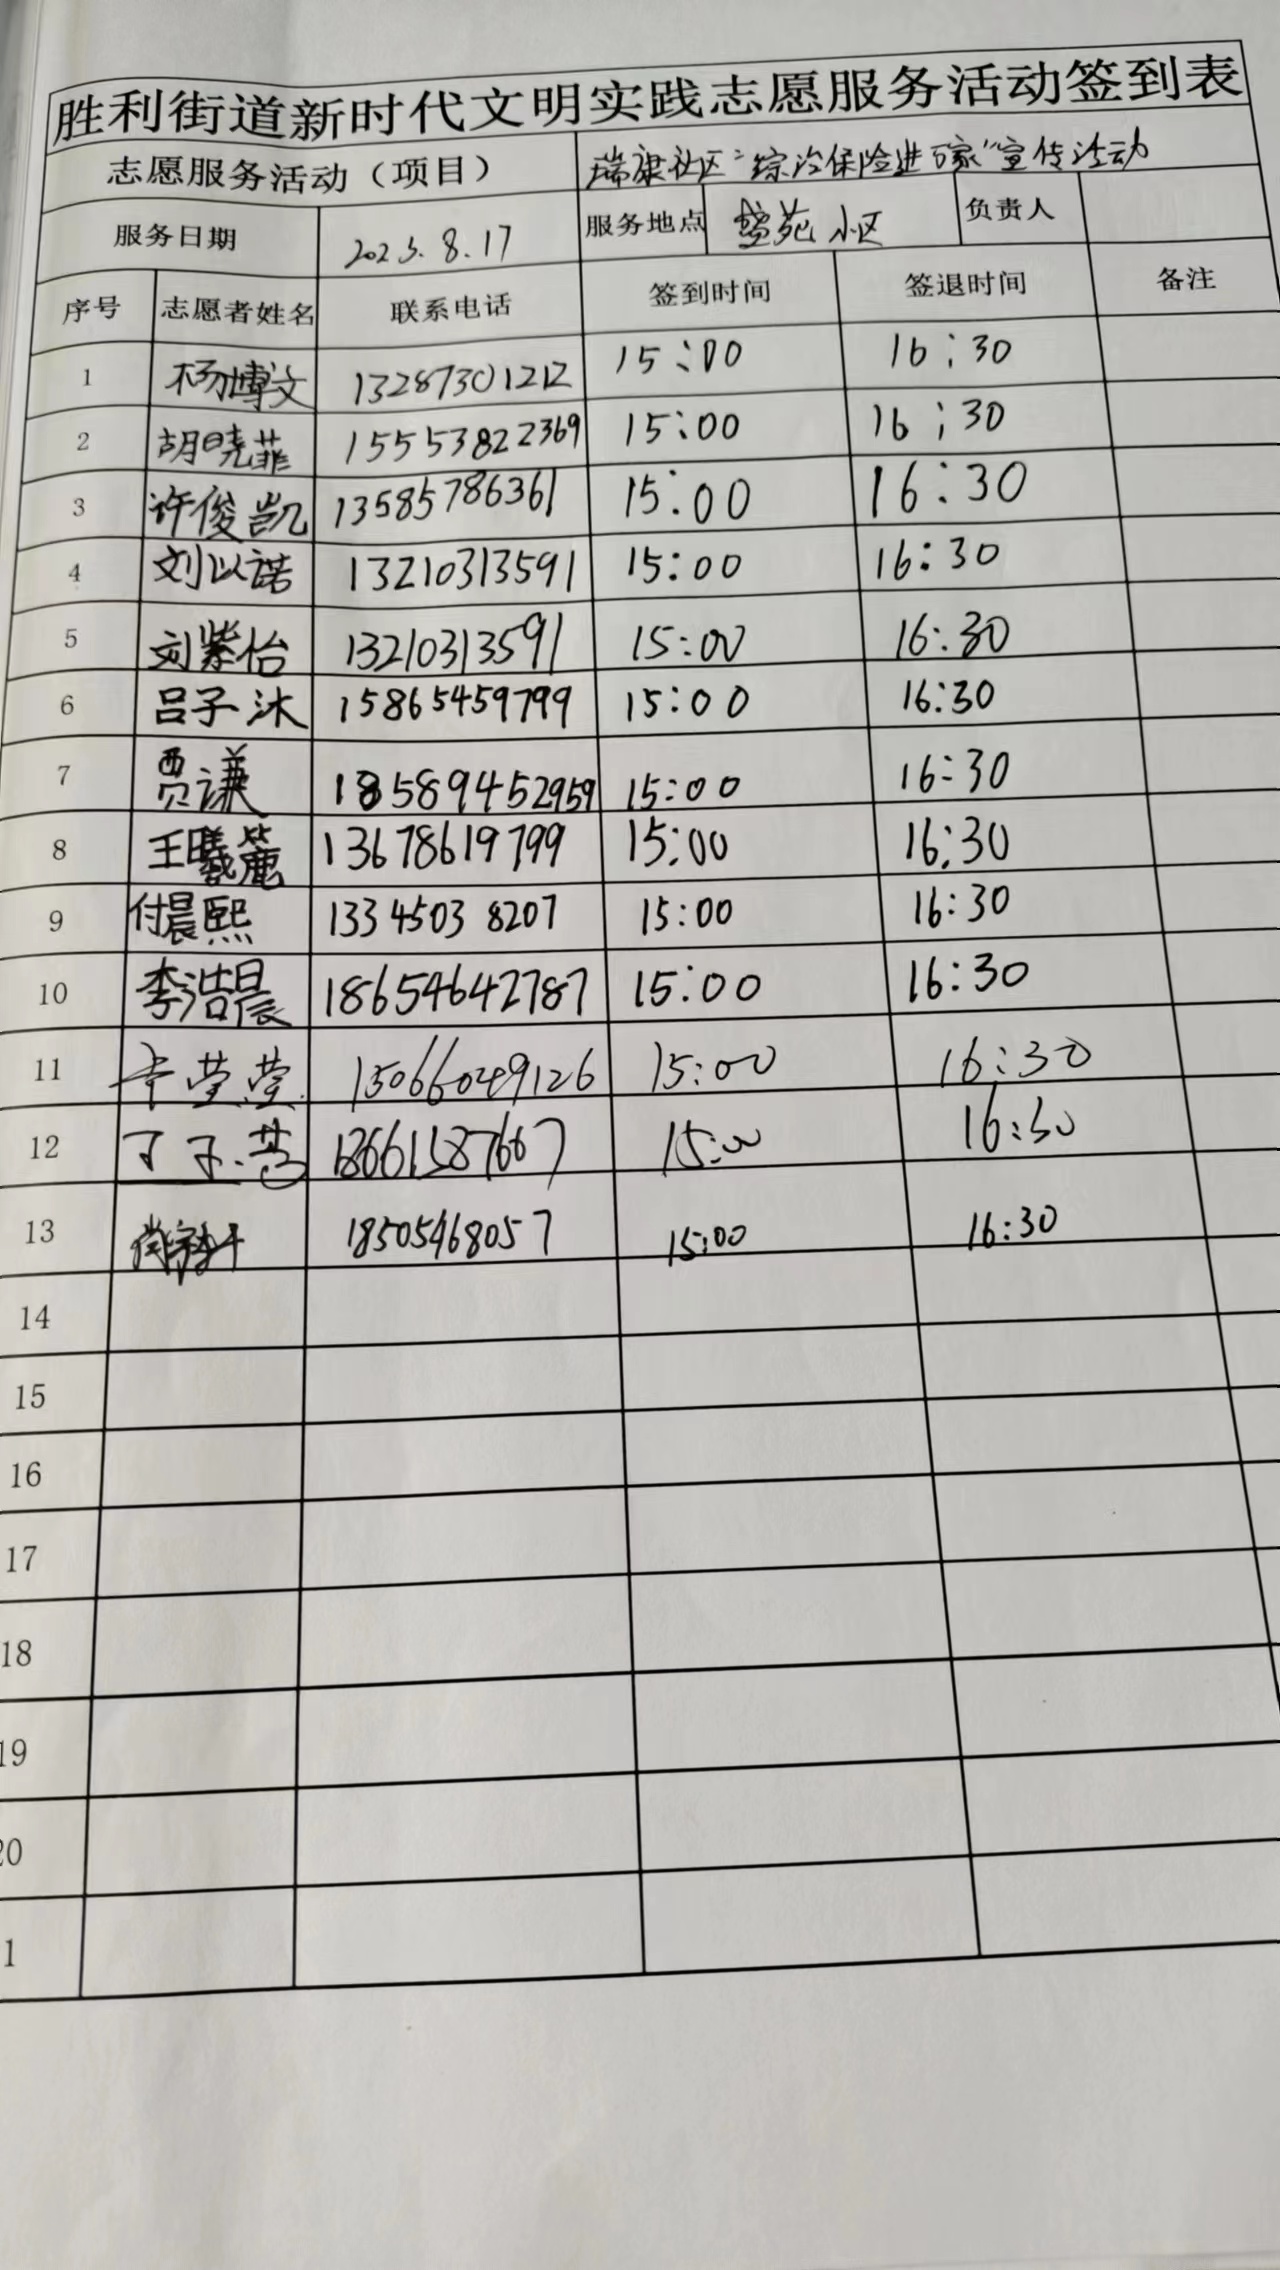 胜利街道新时代文明实践志愿服务活动签到表
志愿服务活动（项目） 瑞康社区“综治保险进万家”宣传活动
服务日期 2023.8.17 服务地点 苑小区 负责人
序号 志愿者姓名 联系电话 签到时间 签退时间 备注
1 杨博文 13287301212 15:00 16:30
2 胡晓菲 15553822369 15:00 16:30
3 许俊凯 13585786361 15:00 16:30
4 刘以诺 13210313591 15:00 16:30
5 刘紫怡 13210313591 15:00 16:30
6 吕子沐 15865459799 15:00 16:30
7 贾谦 185894452959 15:00 16:30
8 王曦麓 13678619799 15:00 16:30
9 付晨熙 13345038207 15:00 16:30
10 李浩晨 18654642787 15:00 16:30
11 莹莹 15066049126 15:00 16:30
12 丁子 18661587667 15:00 16:30
13 18505468057 15:00 16:30
14
15
16
17
18
19
20
1